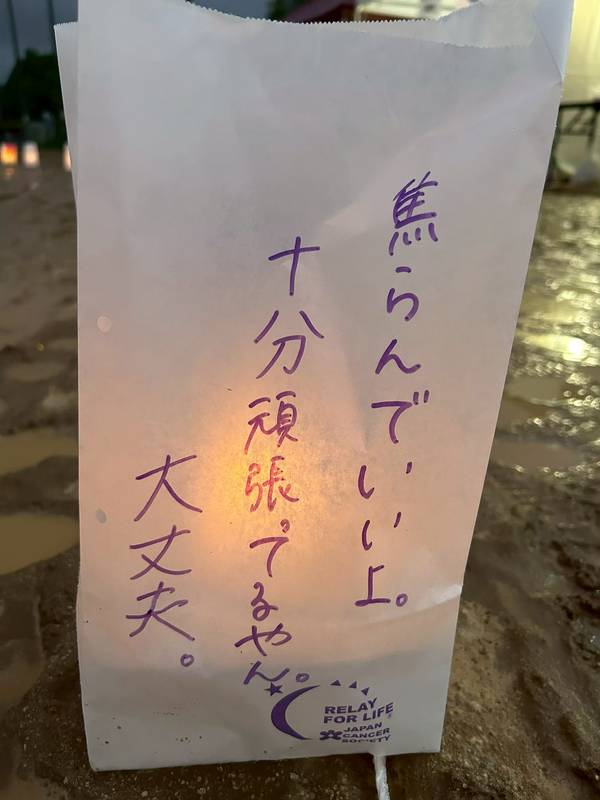 焦らんでいいよ。
十分頑張ってるやん。
大丈夫。
RELAY
FOR LIFE
JAPAN
CANCER
SOCIETY